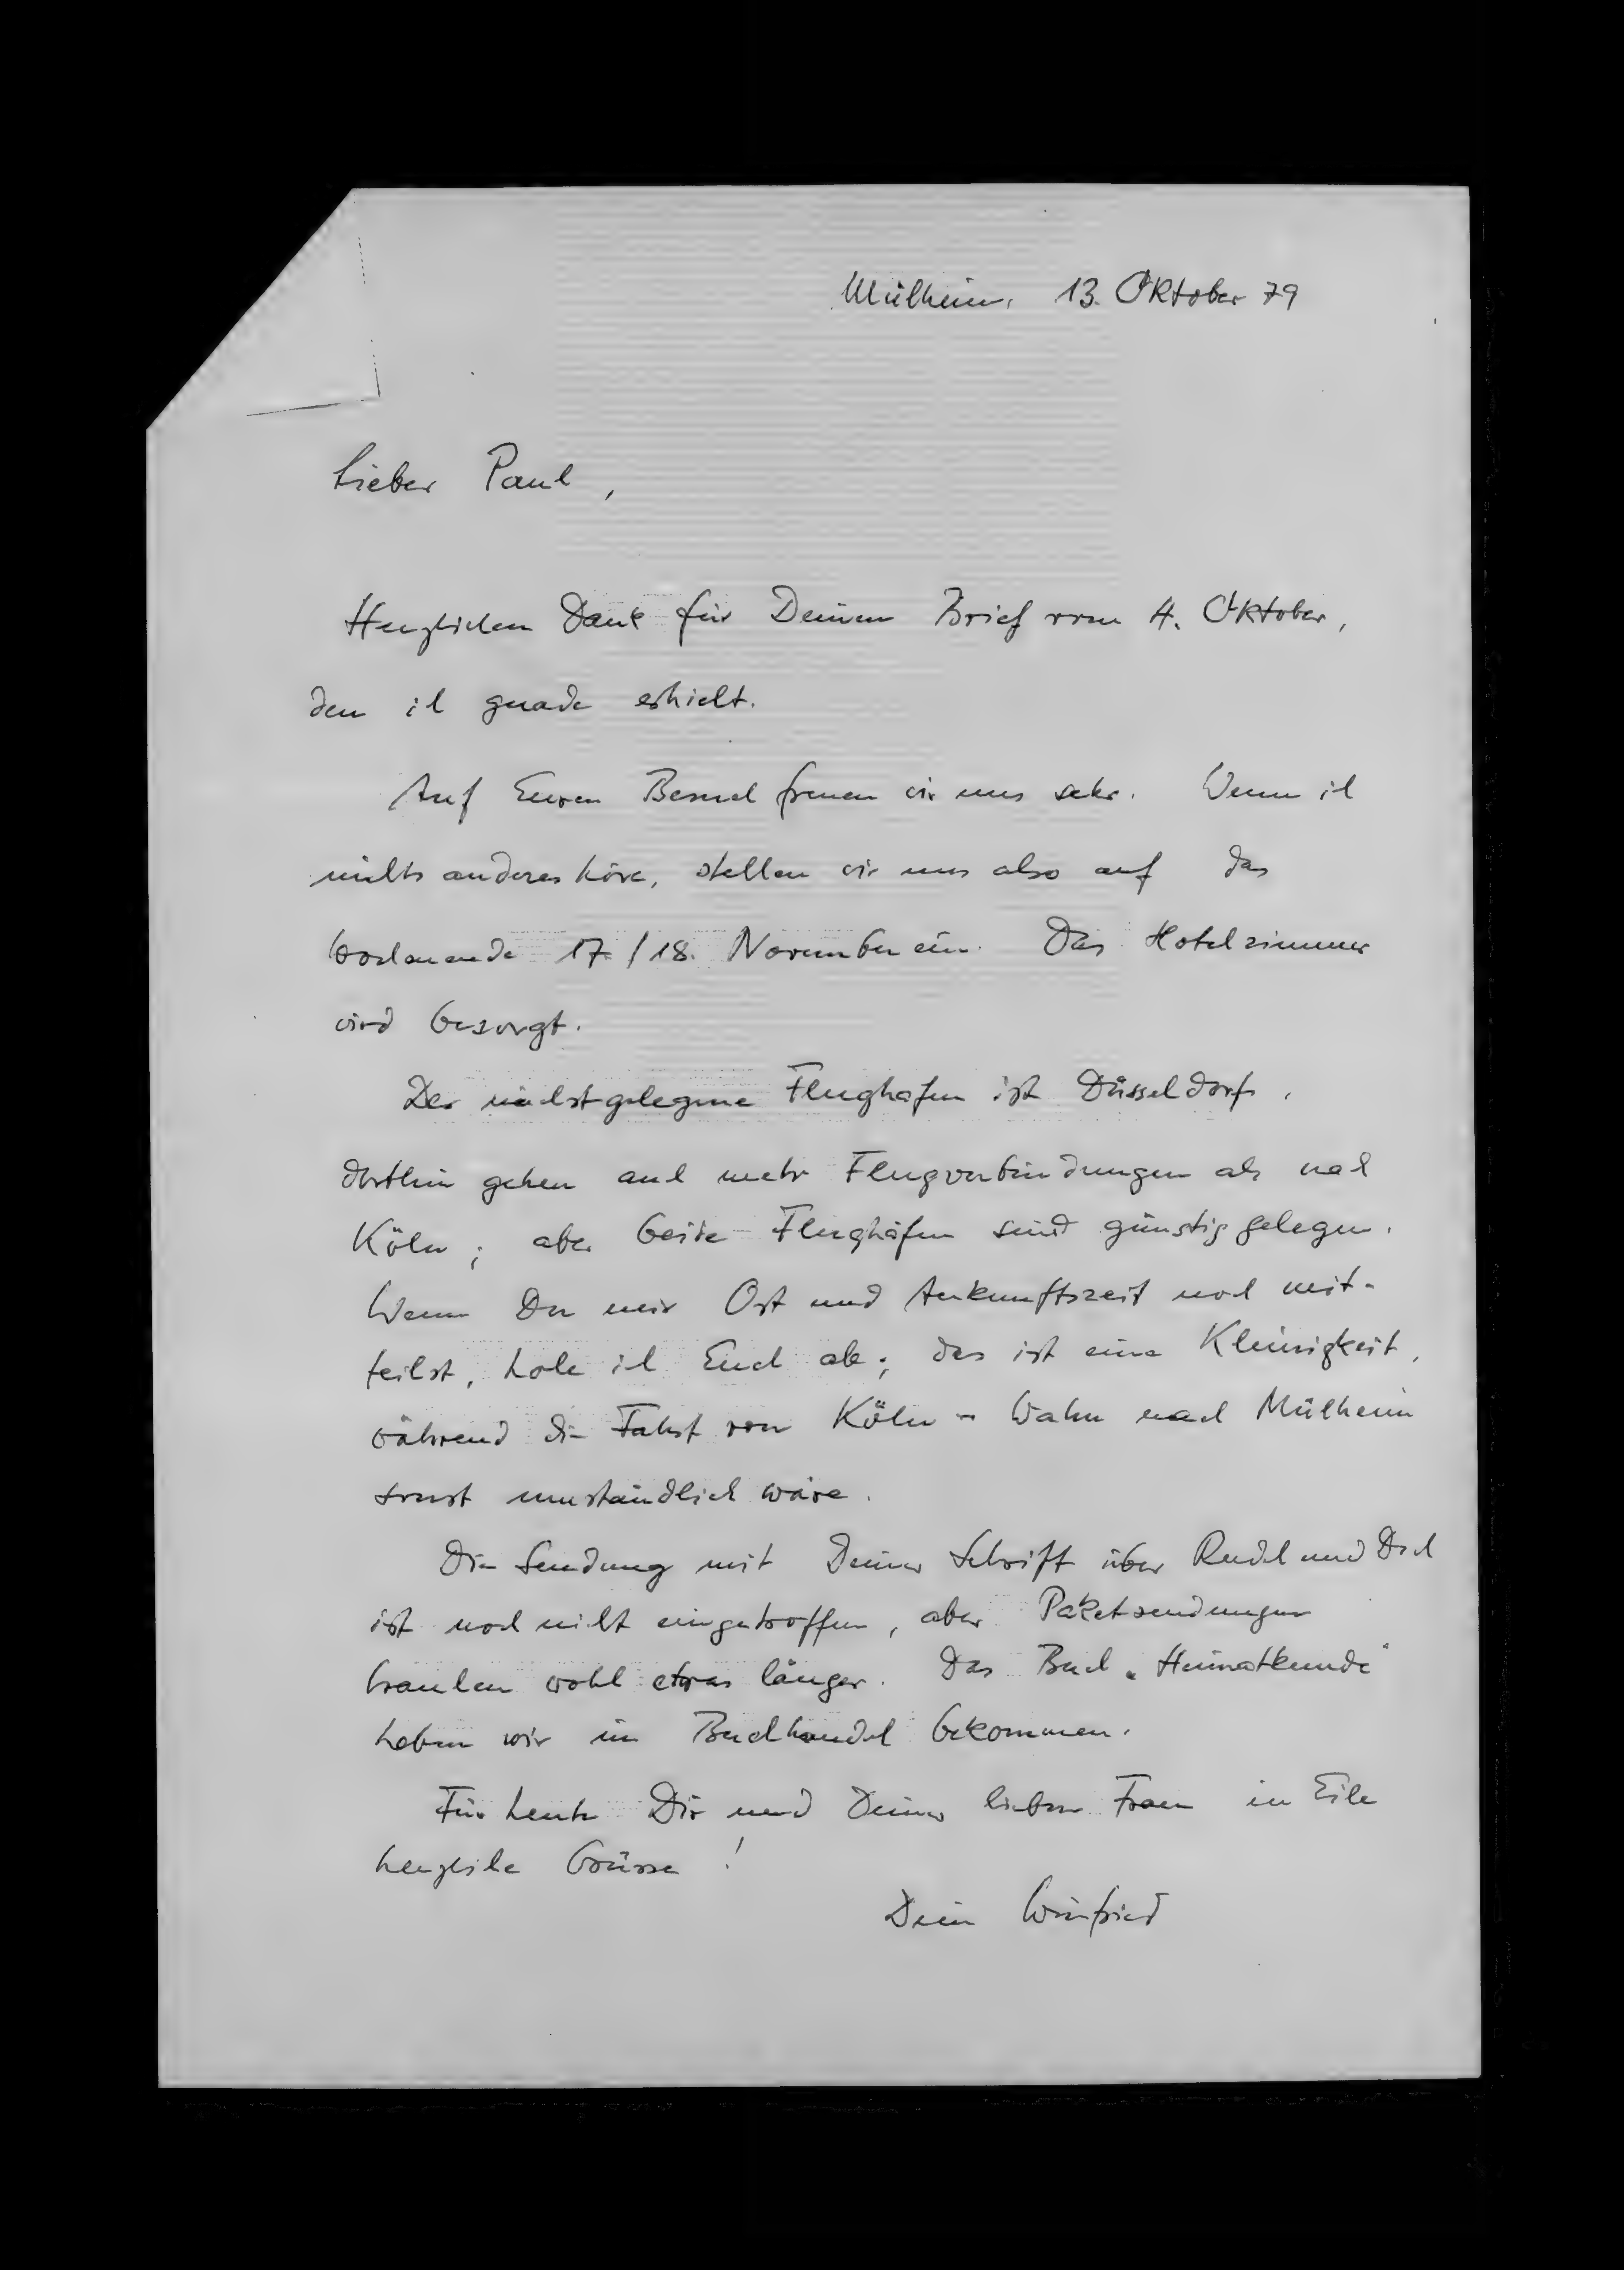 Mülheim, 13. Oktober 79
Lieber Paul,
Herzlichen Dank für Deinen Brief vom 4. Oktober,
den ich gerade erhielt.
Auf Euren Besuch freuen wir uns sehr. Wenn ich
nichts anderes höre, stellen wir uns also auf das
Wochenende 17./18. November ein. Das Hotelzimmer
wird besorgt.
Der nächstgelegene Flughafen ist Düsseldorf.
dorthin gehen auch mehr Flugverbindungen als nach
Köln; aber beide Flughäfen sind günstig gelegen.
Wenn Du mir Ort und Ankunftszeit noch mit-
teilst, hole ich Euch ab; das ist eine Kleinigkeit,
während die Fahrt von Köln-Wahn nach Mülheim
sonst umständlich wäre.
Die Sendung mit Deiner Schrift über Rudel und Dich
ist noch nicht eingetroffen, aber Paketsendungen
brauchen wohl etwas länger. Das Buch „Heimatkunde"
haben wir im Buchhandel bekommen.
Für heute Dir und Deiner lieben Frau in Eile
herzliche Grüsse!
Dein Winfried